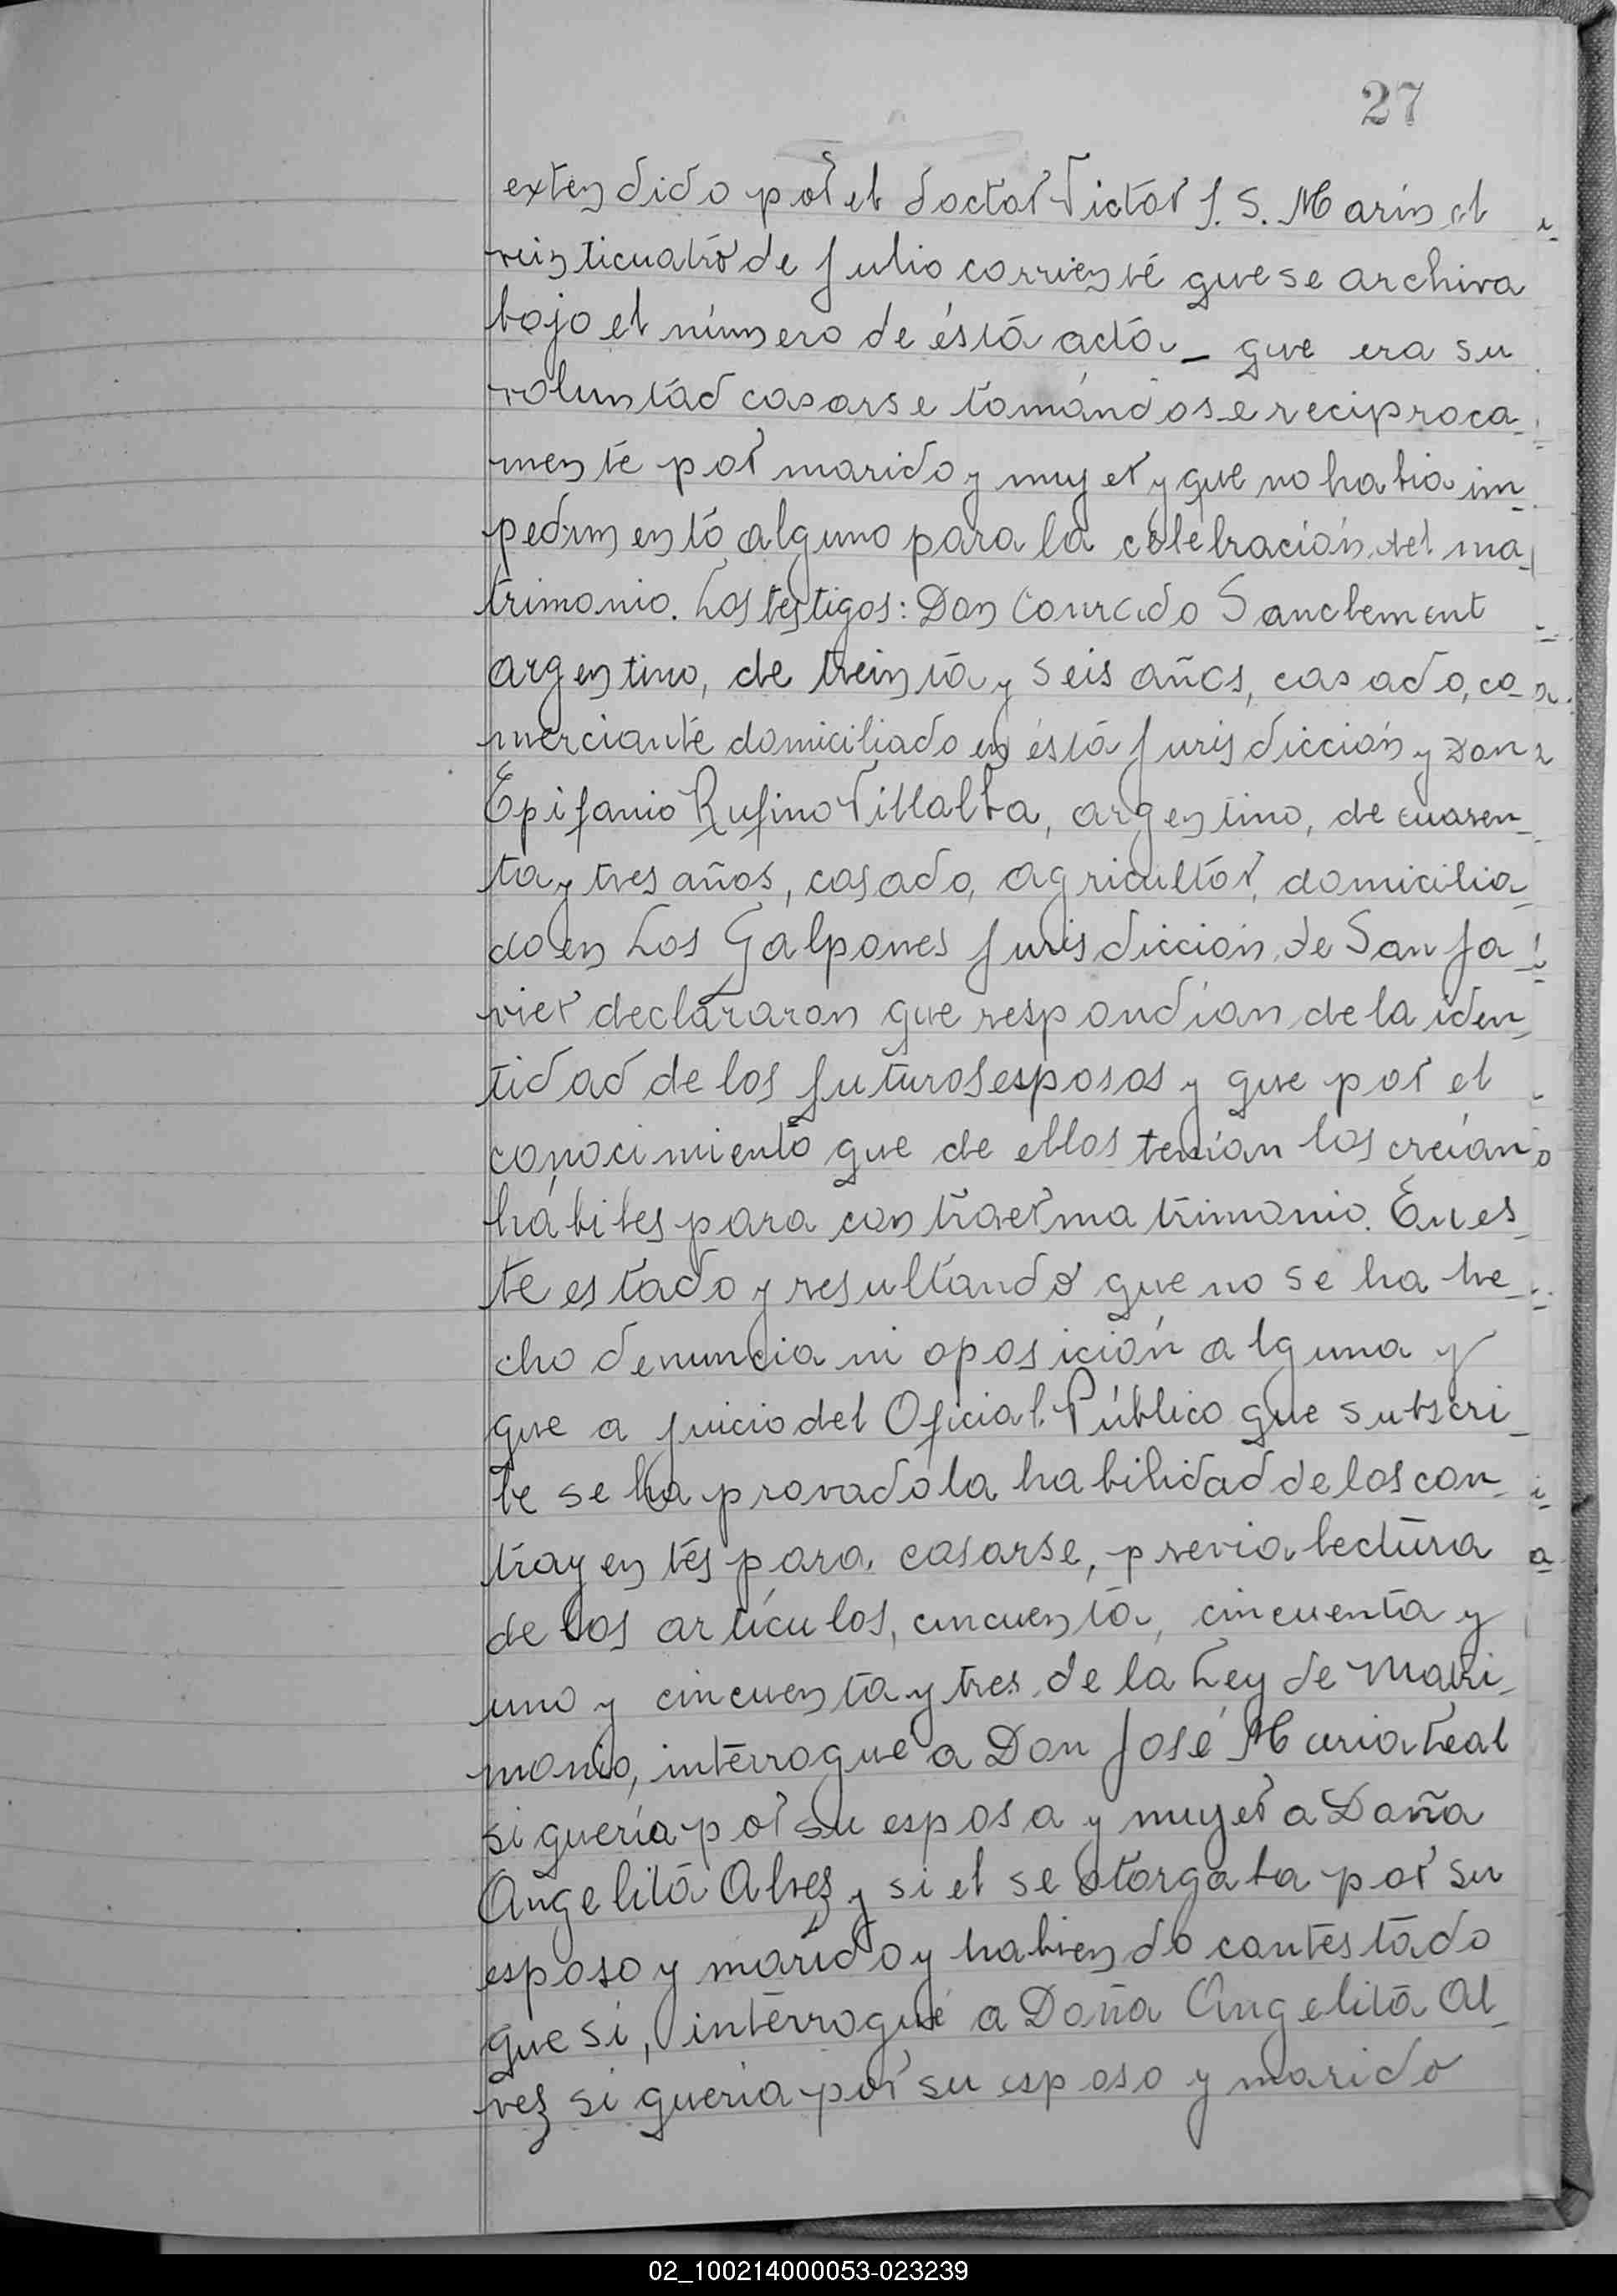 27
extendido por el doctor Victor J. S. Marin el
veinticuatro de Julio corriente que se archiva
bajo el número de ésta acta - que era su
voluntad casarse tomándose reciproca-
mente por marido y mujer y que no habia im-
pedimento alguno para la celebración del ma-
trimonio. Los testigos: Don Conrado Sanclement
argentino, de treinta y seis años, casado, co-
merciante domiciliado en ésta Jurisdicción y Don
Epifanio Rufino Villalba, argentino, de cuaren-
ta y tres años, casado, agricultor, domicilia-
do en Los Galpones Jurisdicción de San Ja-
vier declararon que respondían de la iden-
tidad de los futuros esposos y que por el
conocimiento que de ellos tenían los creían
hábiles para contraer matrimonio. En es-
te estado y resultando que no se ha he-
cho denuncia ni oposición alguna y
que a juicio del Oficial Público que subscri-
be se ha provado la habilidad de los con-
trayentes para casarse, previa lectura
de los artículos, cincuenta, cincuenta y
uno y cincuenta y tres de la Ley de Matri-
monio, interrogue a Don José Maria Leal
si quería por su esposa y mujer a Doña
Angelita Alvez y si el se otorgaba por su
esposo y marido y habiendo contestado
que si, interrogué a Doña Angelita Al-
vez si queria por su esposo y marido
02_100214000053-023239